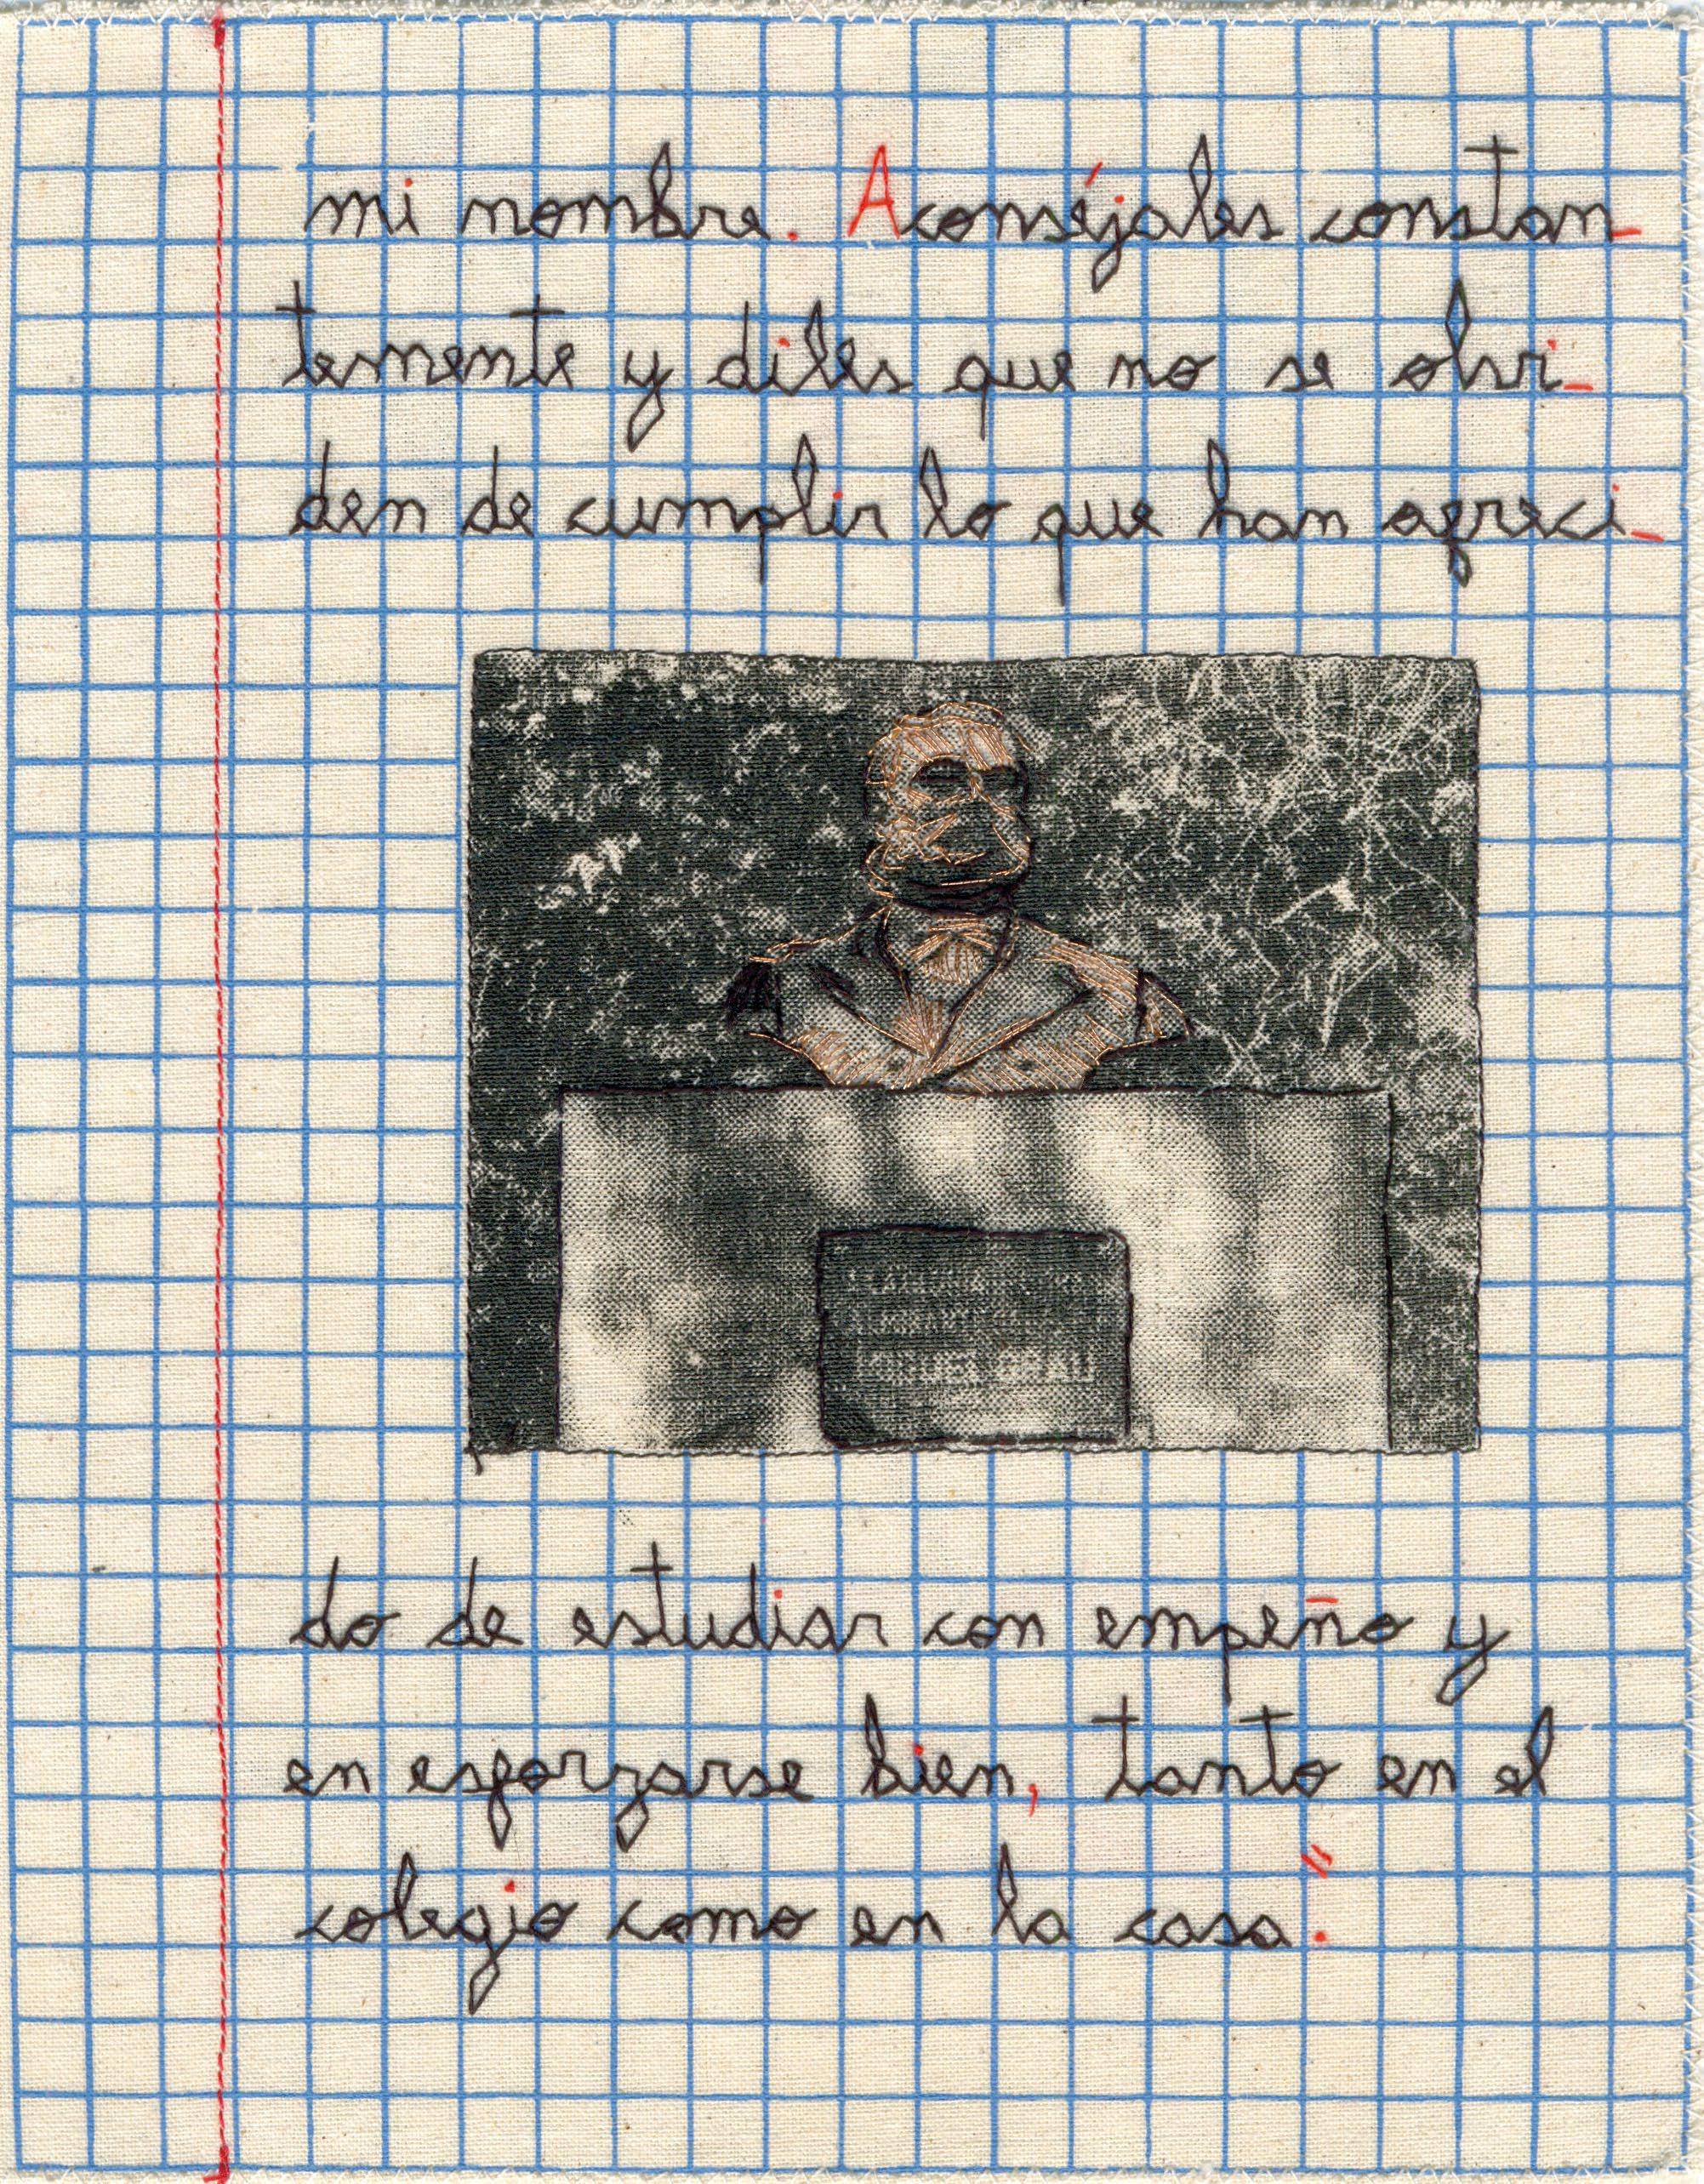 mi nombre. Aconséjales constan-
temente y diles que no se olvi-
den de cumplir lo que han ofreci-
ALMIRANTE
MIGUEL GRAU
do de estudiar con empeño y
en esforzarse bien, tanto en el
colegio como en la casa."